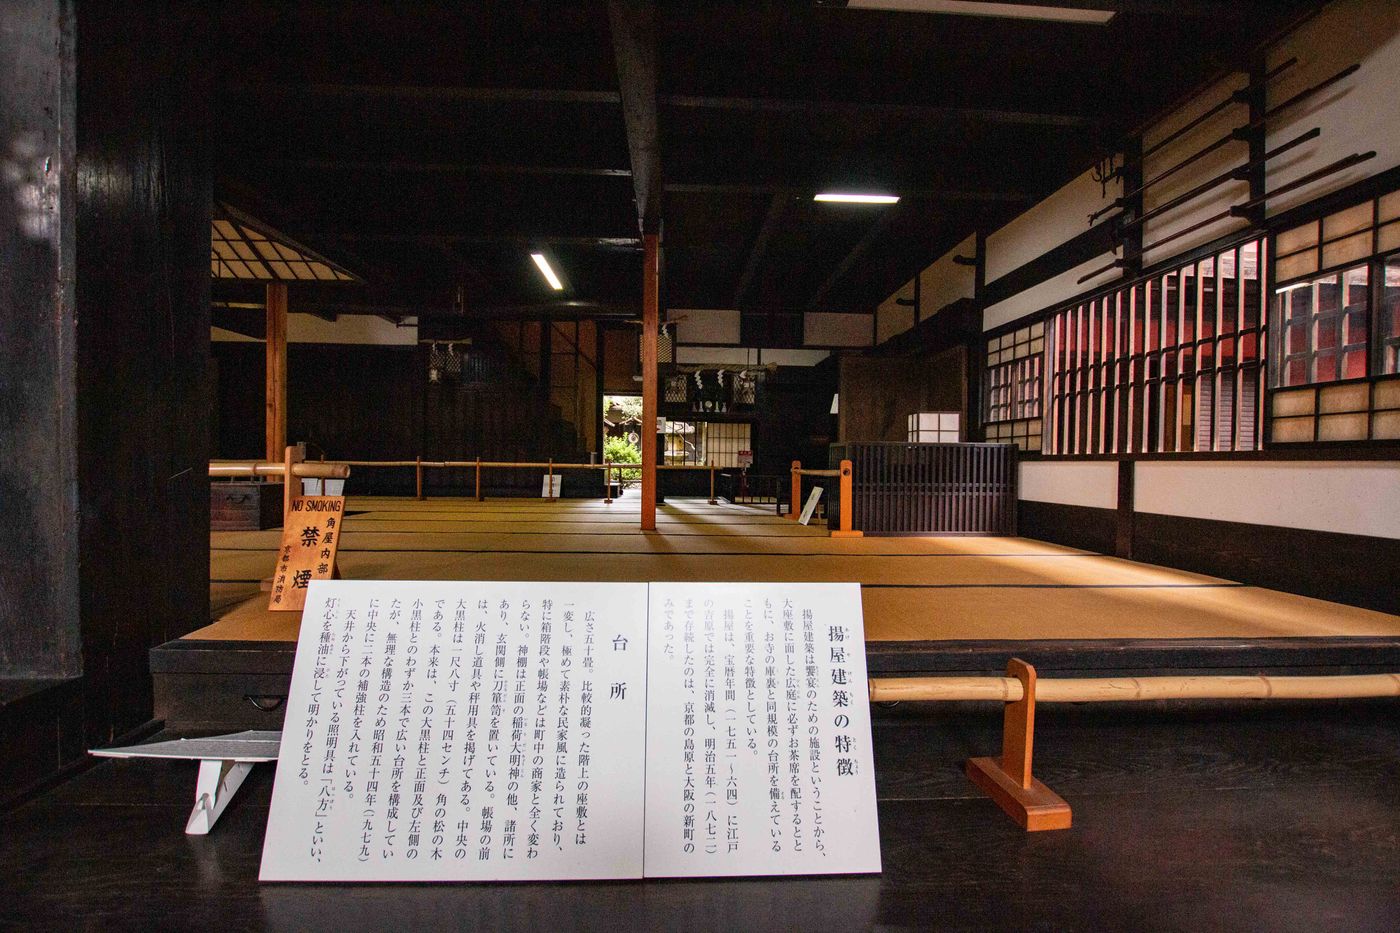 揚屋建築の特徴
揚屋建築は饗宴のための施設ということから、
大座敷に面した広庭に必ずお茶席を配するとと
もに、お寺の庫裏と同規模の台所を備えている
ことを重要な特徴としている。
揚屋は、宝暦年間(一七五一〜六四)に江戸
の吉原では完全に消滅し、明治五年(一八七二)
まで存続したのは、京都の島原と大阪の新町の
みであった。
台所
広さ五十畳。比較的凝った階上の座敷とは
一変し、極めて素朴な民家風に造られており、
特に箱階段や帳場などは町中の商家と全く変わ
らない。神棚は正面の稲荷大明神の他、諸所に
あり、玄関側に刀箪笥を置いている。帳場の前
は、火消し道具や秤用具を掲げてある。中央の
大黒柱は一尺八寸(五十四センチ)角の松の木
である。本来は、この大黒柱と正面及び左側の
小黒柱とのわずか三本で広い台所を構成してい
たが、無理な構造のため昭和五十四年(一九七九)
に中央に二本の補強柱を入れている。
天井から下がっている照明具は「八方」といい、
灯心を種油に浸して明かりをとる。
NO SMOKING
角屋内部
禁煙
京都市消防局